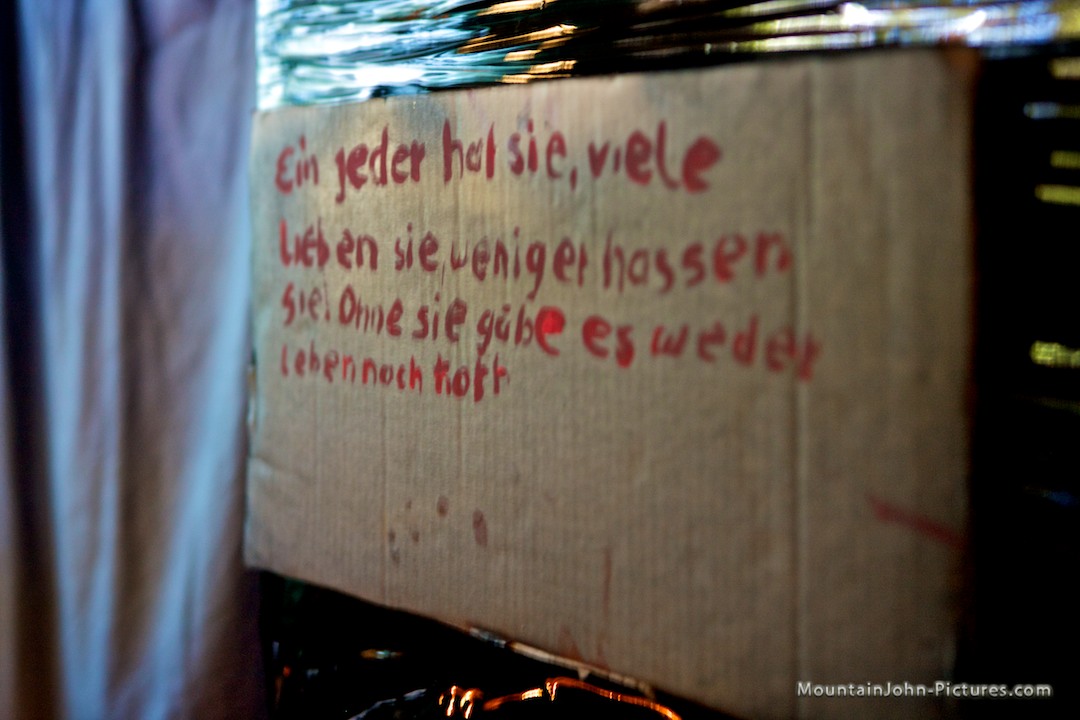 Ein jeder hat sie, viele
lieben sie, weniger hassen
sie! Ohne sie gäbe es weder
Leben noch
MountainJohn-Pictures.com